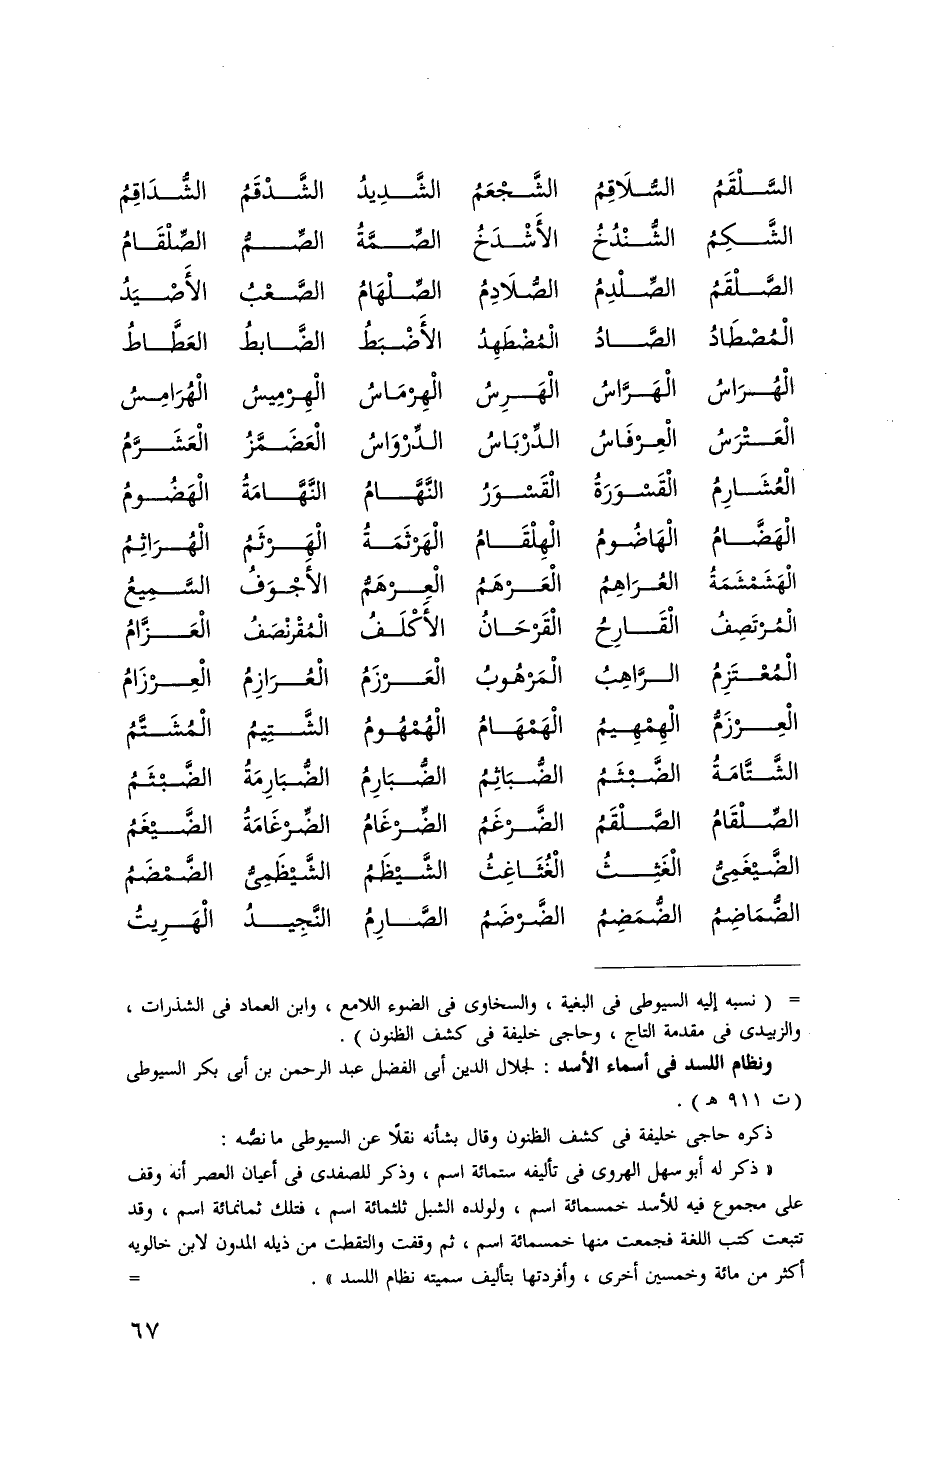 السَّلْقَمُ السُّلَاقِمُ الشَّجْعَمُ الشَّدِيدُ الشَّدْقَمُ الشُّدَاقِمُ
الشَّكِمُ الشُّنْدُخُ الأَشْدَخُ الصِّمَّةُ الصِّمُّ الصِّلْقَامُ
الصَّلْقَمُ الصِّلْدِمُ الصُّلَادِمُ الصِّلْهَامُ الصَّعْبُ الأَصْيَدُ
الْمُصْطَادُ الصَّادُ الْمُضْطَهِدُ الأَضْبَطُ الضَّابِطُ العَطَّاطُ
الْهُرَاسُ الْهَرَّاسُ الْهَرِسُ الْهِرْمَاسُ الْهِرْمِيسُ الْهُرَامِسُ
الْعَتْرَسُ الْعِرْفَاسُ الدِّرْبَاسُ الدِّرْوَاسُ الْعَضَمَّزُ الْعَشَرَّمُ
الْعُشَارِمُ الْقَسْوَرَةُ الْقَسْوَرُ النَّهَّامُ النَّهَّامَةُ الْهَضُومُ
الْهَضَّامُ الْهَاضُومُ الْهِلْقَامُ الْهَرْثَمَةُ الْهَرْثَمُ الْهُرَاثِمُ
الْهَشَمْشَمَةُ العُرَاهِمُ الْعَرْهَمُ الْعِرْهَمُّ الأَجْوَفُ السَّمِيعُ
الْمُرْتَصِفُ الْقَارِحُ الْقَرْحَانُ الأَكْلَفُ الْمُقْرَنْصَفُ الْعَزَّامُ
الْمُعْتَزِمُ الرَّاهِبُ الْمَرْهُوبُ الْعَرْزَمُ الْعُرَازِمُ الْعِرْزَامُ
الْعِرْزَمُّ الْهِمْهِيمُ الْهَمْهَامُ الْهُمْهُومُ الشَّتِيمُ الْمُشَتَّمُ
الشَّتَّامَةُ الضَّبْثَمُ الضُّبَاثِمُ الضُّبَارِمُ الضُّبَارِمَةُ الضَّبْثَمُ
الصِّلْقَامُ الصَّلْقَمُ الضَّرْغَمُ الضِّرْغَامُ الضِّرْغَامَةُ الضَّيْغَمُ
الضَّيْغَمِىُّ الْغَثِثُ الْغُثَاغِثُ الشَّيْظَمُ الشَّيْظَمِىُّ الضَّمْضَمُ
الضُّمَاضِمُ الضُّمَضِمُ الضَّرْضَمُ الصَّارِمُ النَّجِيدُ الْهَرِيتُ
= ( نسبه إليه السيوطى فى البغية ، والسخاوى فى الضوء اللامع ، وابن العماد فى الشذرات ،
والزبيدى فى مقدمة التاج ، وحاجى خليفة فى كشف الظنون ) .
ونظام اللسد فى أسماء الأسد : لجلال الدين أبى الفضل عبد الرحمن بن أبى بكر السيوطى
(ت ٩١١ هـ) .
ذكره حاجى خليفة فى كشف الظنون وقال بشأنه نقلًا عن السيوطى ما نصُّه :
« ذكر له أبو سهل الهروى فى تأليفه ستمائة اسم ، وذكر للصفدى فى أعيان العصر أنه وقف
على مجموع فيه للأسد خمسمائة اسم ، ولولده الشبل ثلثمائة اسم ، فتلك ثمانمائة اسم ، وقد
تتبعت كتب اللغة فجمعت منها خمسمائة اسم ، ثم وقفت والتقطت من ذيله المدون لابن خالويه
أكثر من مائة وخمسين أخرى ، وأفردتها بتأليف سميته نظام اللسد » . =
٦٧